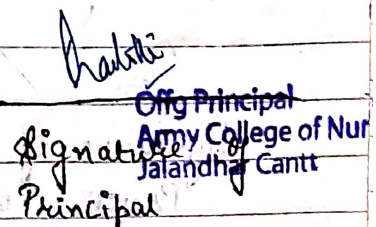 Offg Principal
Army College of Nur
Jalandhar Cantt
Signature of
Principal